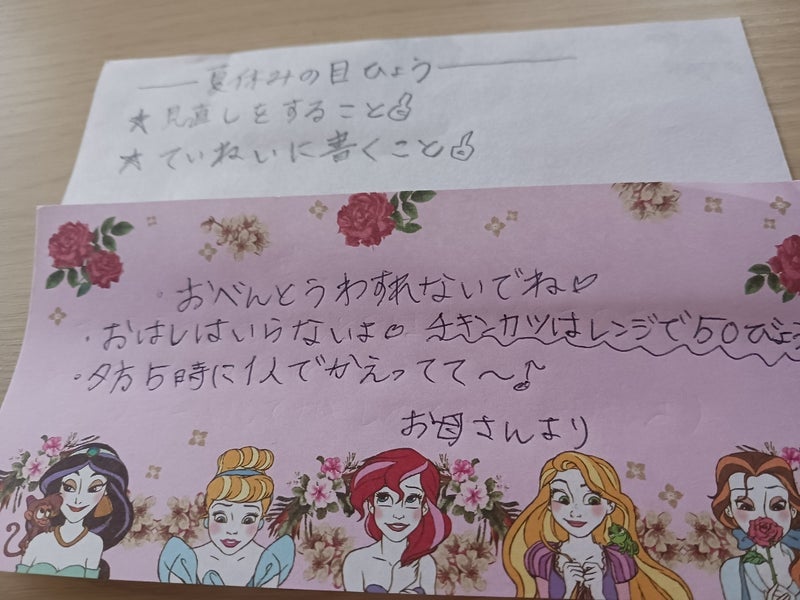 夏休みの目ひょう
★見直しをすること👍
★ていねいに書くこと👍
・おべんとうわすれないでね♡
・おはしはいらないよ○ チキンカツはレンジで50びょ
・夕方5時に1人でかえってて〜♪
お母さんより